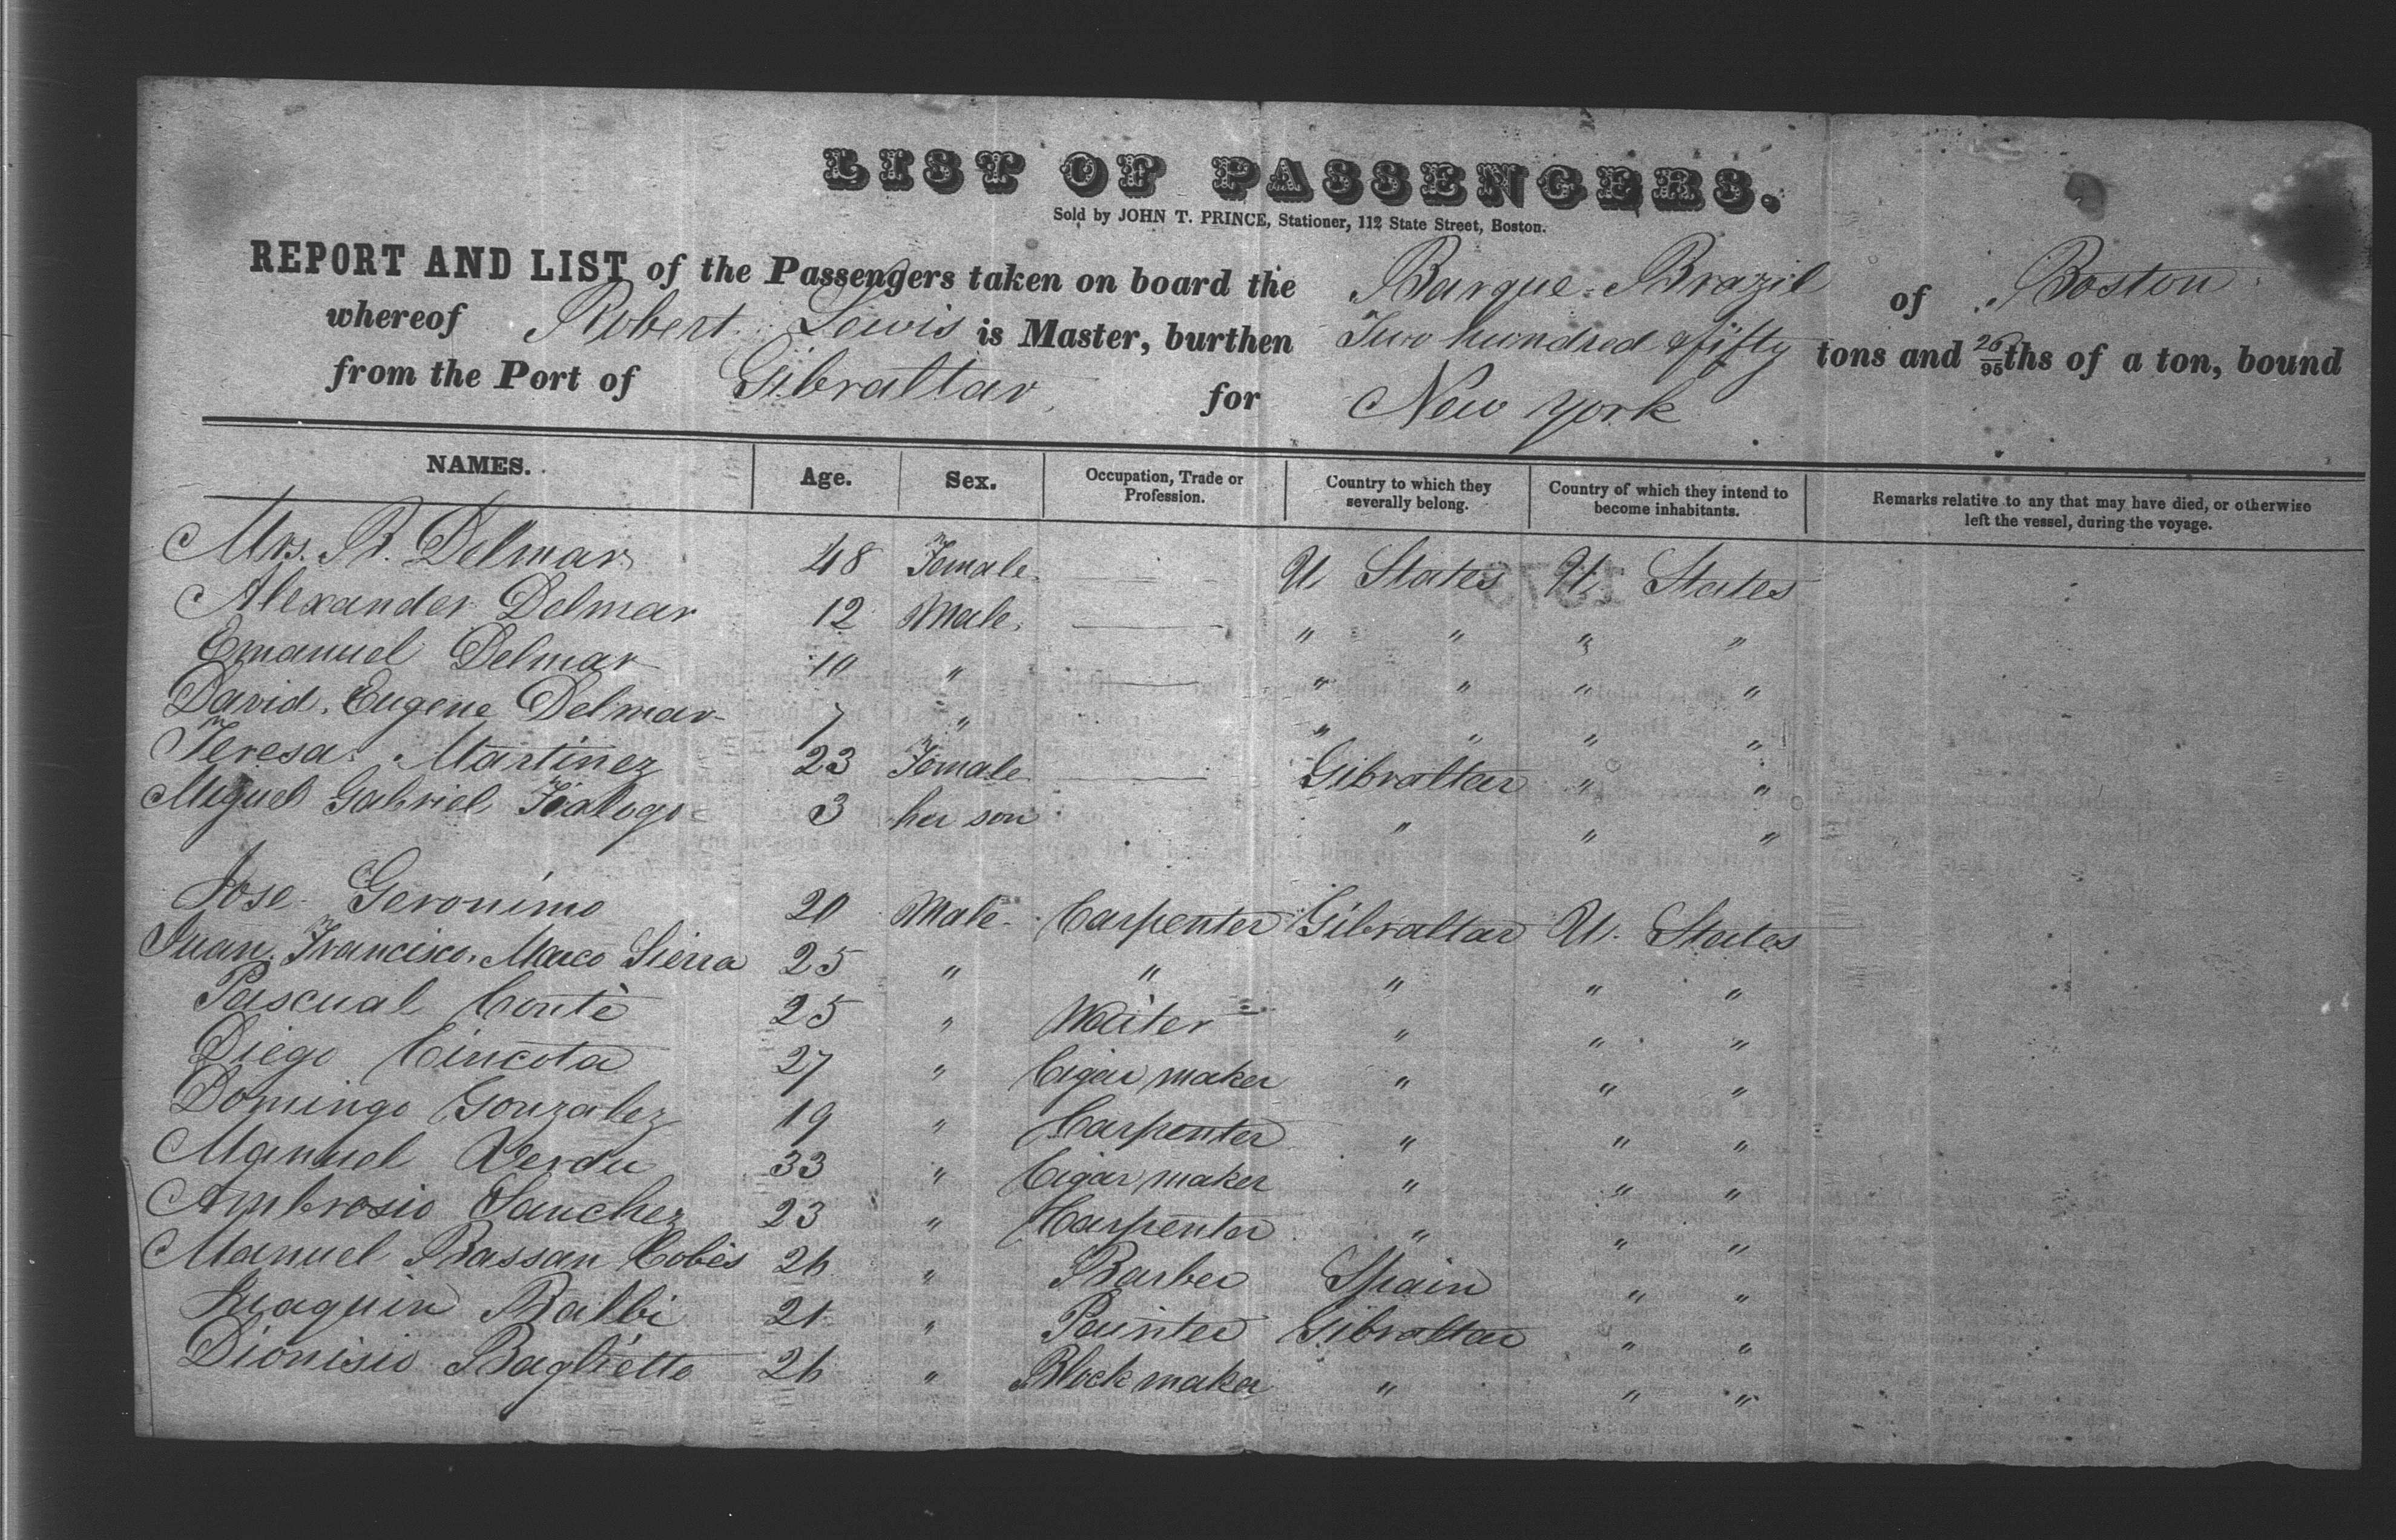 LIST OF PASSENGERS.
Sold by JOHN T. PRINCE, Stationer, 112 State Street, Boston.
REPORT AND LIST of the Passengers taken on board the Barque Brazil of Boston
whereof Robert Lewis is Master, burthen Two hundred & fifty tons and 26/95ths of a ton, bound
from the Port of Gibraltar for New York
NAMES. Age. Sex. Occupation, Trade or Profession. Country to which they severally belong. Country of which they intend to become inhabitants. Remarks relative to any that may have died, or otherwise left the vessel, during the voyage.
Mrs. R. Delmar 48 Female U States U. States
Alexander Delmar 12 Male " " " "
Emanuel Delmar 10 " " " " "
David Eugene Delmar 7 " " " " "
Teresa Martinez 23 Female Gibraltar " "
Miguel Gabriel 3 her son " " "
Jose Geronimo 20 Male Carpenter Gibraltar U. States
Juan Francisco Marco Sierra 25 " " " " "
Pascual Contè 25 " Waiter " " "
Diego Cincota 27 " Cigar maker " " "
Domingo Gonzalez 19 " Carpenter " " "
Manuel Verdu 33 " Cigar maker " " "
Ambrosio Sanchez 23 " Carpenter " " "
Manuel Bassan Cobès 26 " Barber Spain " "
Juaquin Balbi 21 " Painter Gibraltar " "
Dionisio Baglietto 26 " Block maker " " "